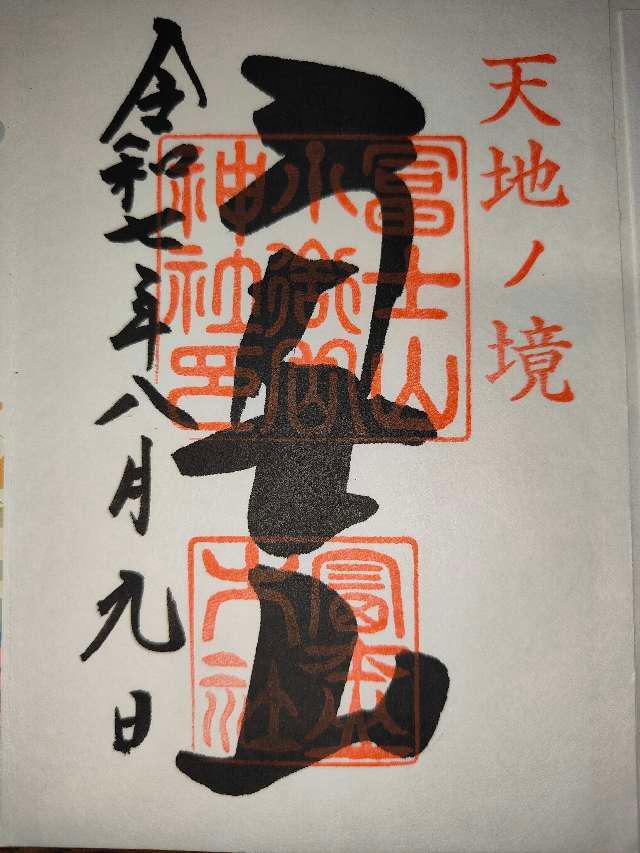 天地ノ境
冨士山
富士山
小御嶽
神社印
令和七年八月九日